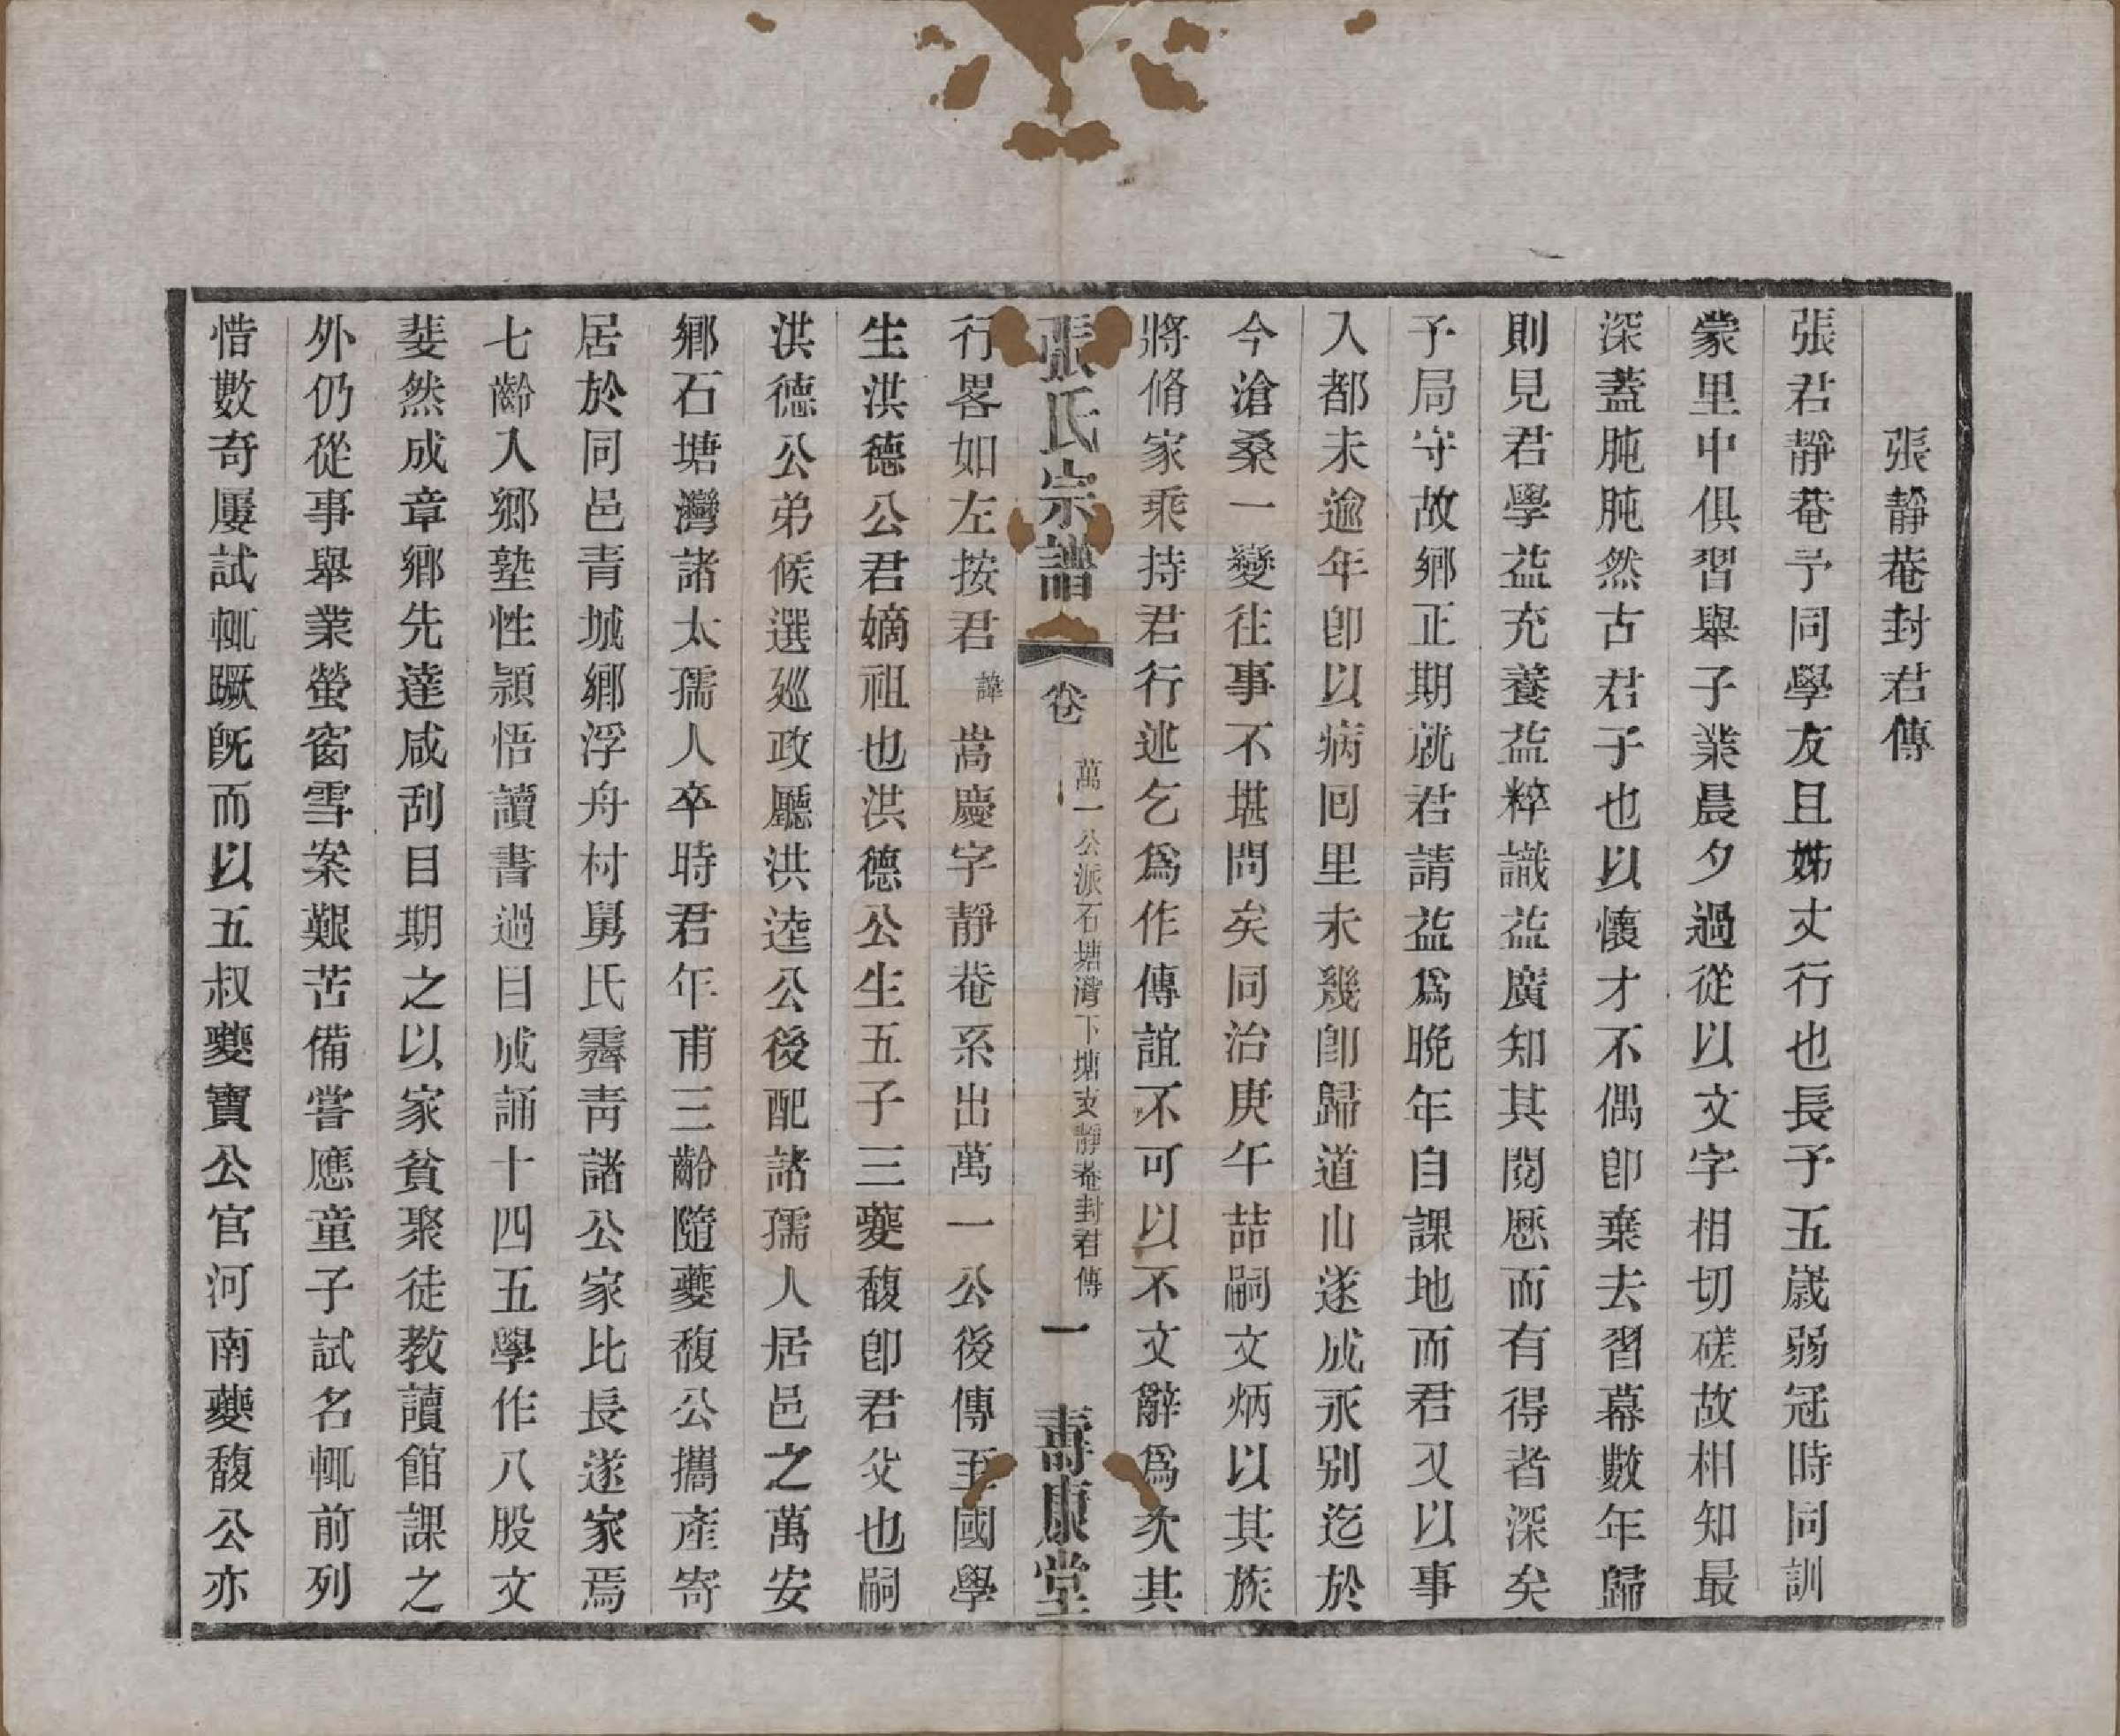 張靜菴封君傳
張君靜菴予同學友且姊丈行也長予五歲弱冠時同訓
蒙里中俱習舉子業晨夕過從以文字相切磋故相知最
深蓋肫肫然古君子也以懷才不偶卽棄去習幕數年歸
則見君學益充養益粹識益廣知其閱歷而有得者深矣
予局守故鄉正期就君請益爲晚年自課地而君又以事
入都未逾年卽以病囘里未幾卽歸道山遂成永别迄於
今滄桑一變往事不堪問矣同治庚午喆嗣文炳以其族
將脩家乘持君行述乞爲作傳誼不可以不文辭爲次其
張氏宗譜
卷
萬一公派石塘灣下塘支靜菴封君傳
一
壽康堂
行畧如左按君諱嵩慶字靜菴系出萬一公後傳至國學
生洪德公君嫡祖也洪德公生五子三夔馥卽君父也嗣
洪德公弟候選廵政廳洪逵公後配諸孺人居邑之萬安
鄉石塘灣諸太孺人卒時君年甫三齡隨夔馥公攜產寄
居於同邑青城鄉浮舟村舅氏霽青諸公家比長遂家焉
七齡入鄉塾性穎悟讀書過目成誦十四五學作八股文
斐然成章鄉先達咸刮目期之以家貧聚徒教讀館課之
外仍從事舉業螢窗雪案艱苦備嘗應童子試名輒前列
惜數奇屢試輒蹶旣而以五叔夔寶公官河南夔馥公亦